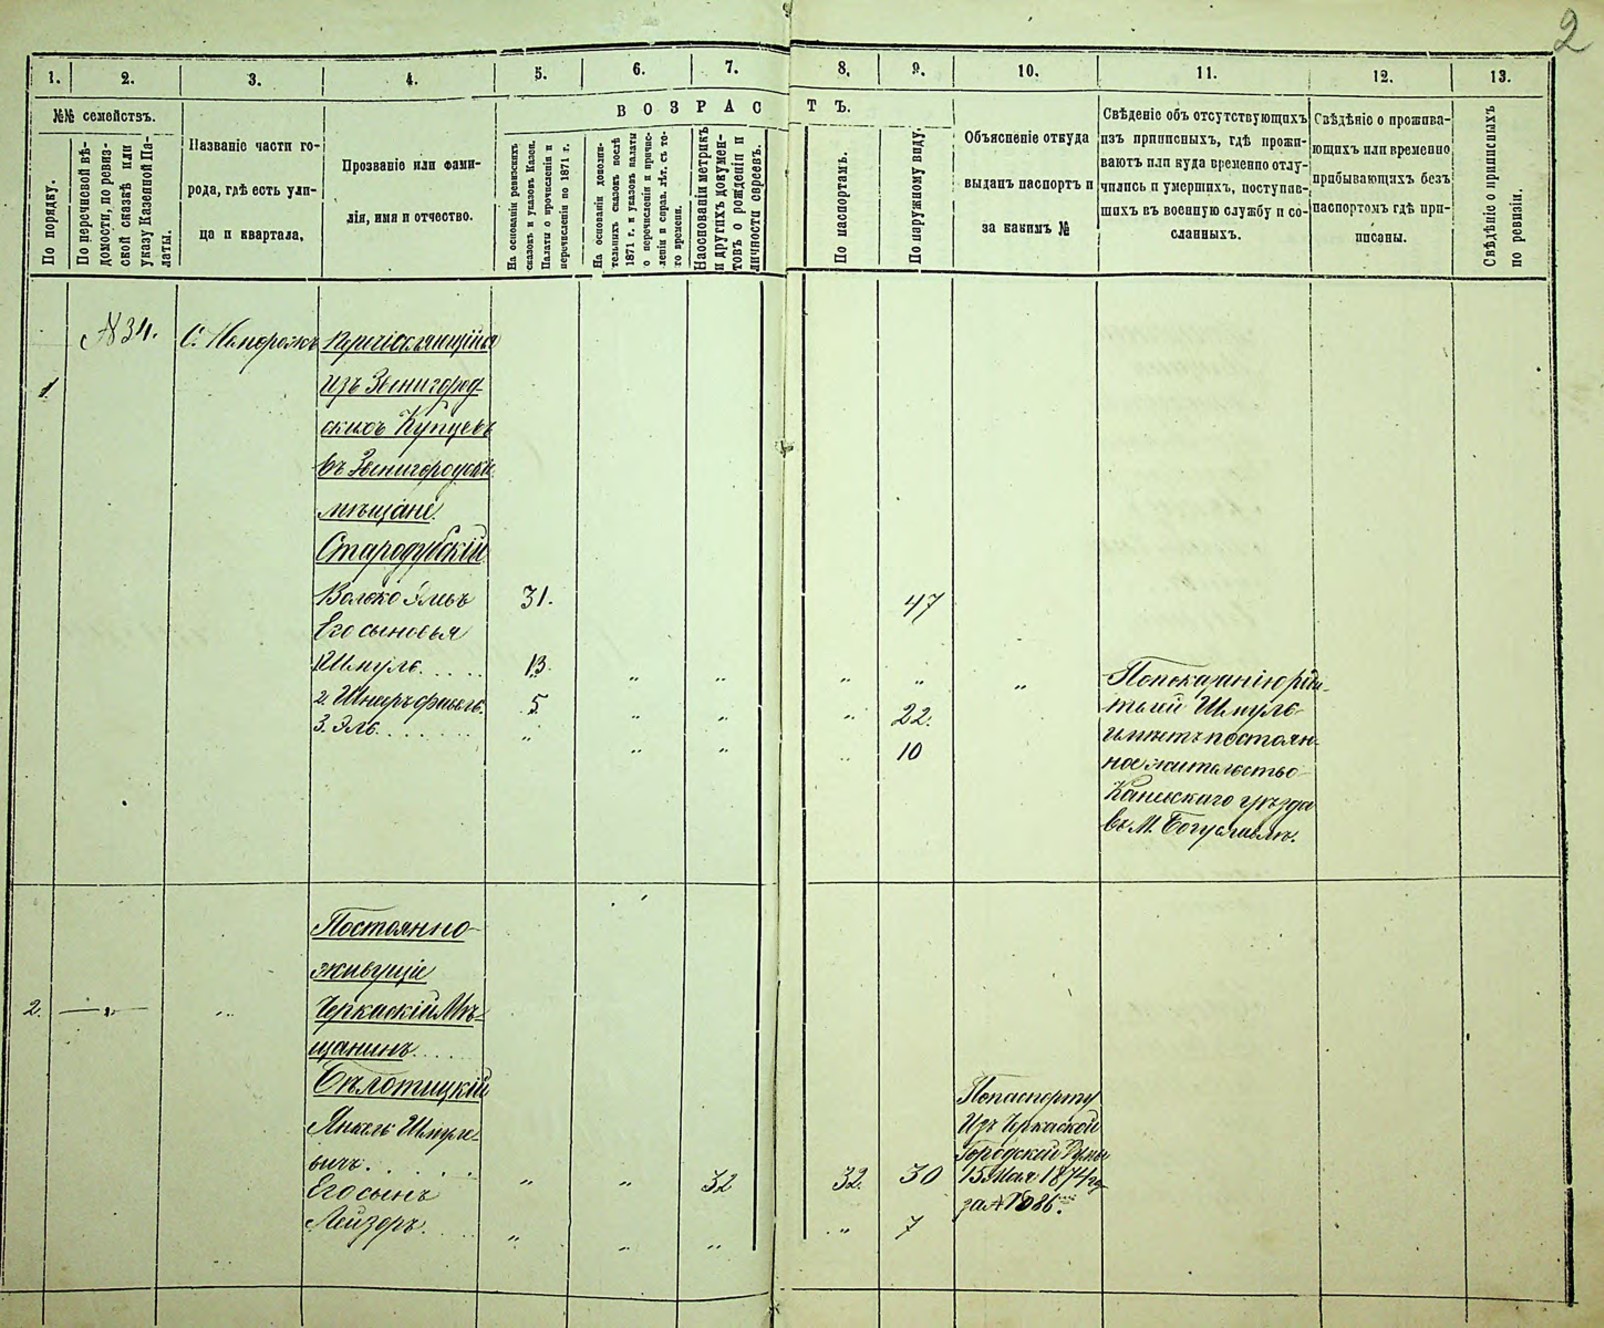 2
1.
2.
3.
4.
5.
6.
7.
8.
9.
10.
11.
12.
13.
№№ семействъ.
По порядку.
По перечневой вѣ-
домости, по ревиз-
ской сказкѣ или
указу Казенной Па-
латы.
Названіе части го-
рода, гдѣ есть ули-
ца и квартала,
Прозваніе или фами-
лія, имя и отчество.
ВОЗРАСТЪ.
На основаніи ревизскихъ
сказокъ и указовъ Казен.
Палаты о причисленіи и
перечисленіи по 1871 г.
На основаніи дополни-
тельныхъ сказокъ послѣ
1871 г. и указовъ палаты
о перечисленіи и причис-
леніи и справ. лѣт. съ то-
го времени.
Наоснованіи метрикъ
и другихъ докумен-
товъ о рожденіи и
личности евреевъ.
По паспортамъ.
По наружному виду.
Объясненіе откуда
выданъ паспортъ и
за какимъ №
Свѣденіе объ отсутствующихъ
изъ приписныхъ, гдѣ прожи-
ваютъ или куда временно отлу-
чились и умершихъ, поступив-
шихъ въ военную службу и со-
сланныхъ.
Свѣдѣніе о прожива-
ющихъ или временно
прибывающихъ безъ
паспортомъ гдѣ при-
писаны.
Свѣдѣніе о приписныхъ
по ревизіи.
1
№34.
С.
Изъ Звенигород-
скихъ Купцевъ
въ Звенигородскіе
мѣщане.
Стародубскій
31.
47
Его сыновья
Шмуль.....
13.
" " " " "
2.
5
" " " 22.
3. Эль.......
" " " " 10
По показанію
Шмуль
имѣетъ постоян-
ное жительство
Каневскаго уѣзда
въ М. Богуславлѣ.
Постоянно-
живущіе
2. —"— "
Черкаскій Мѣ-
щанинъ....
Бѣлотицкій
Янкель Шмуле-
вичъ......
" " 32 32. 30
Его сынъ
Лейзоръ.....
" " " " 7
По паспорту
Изъ Черкаской
Городской Думы
15 Мая 1874 го
за №